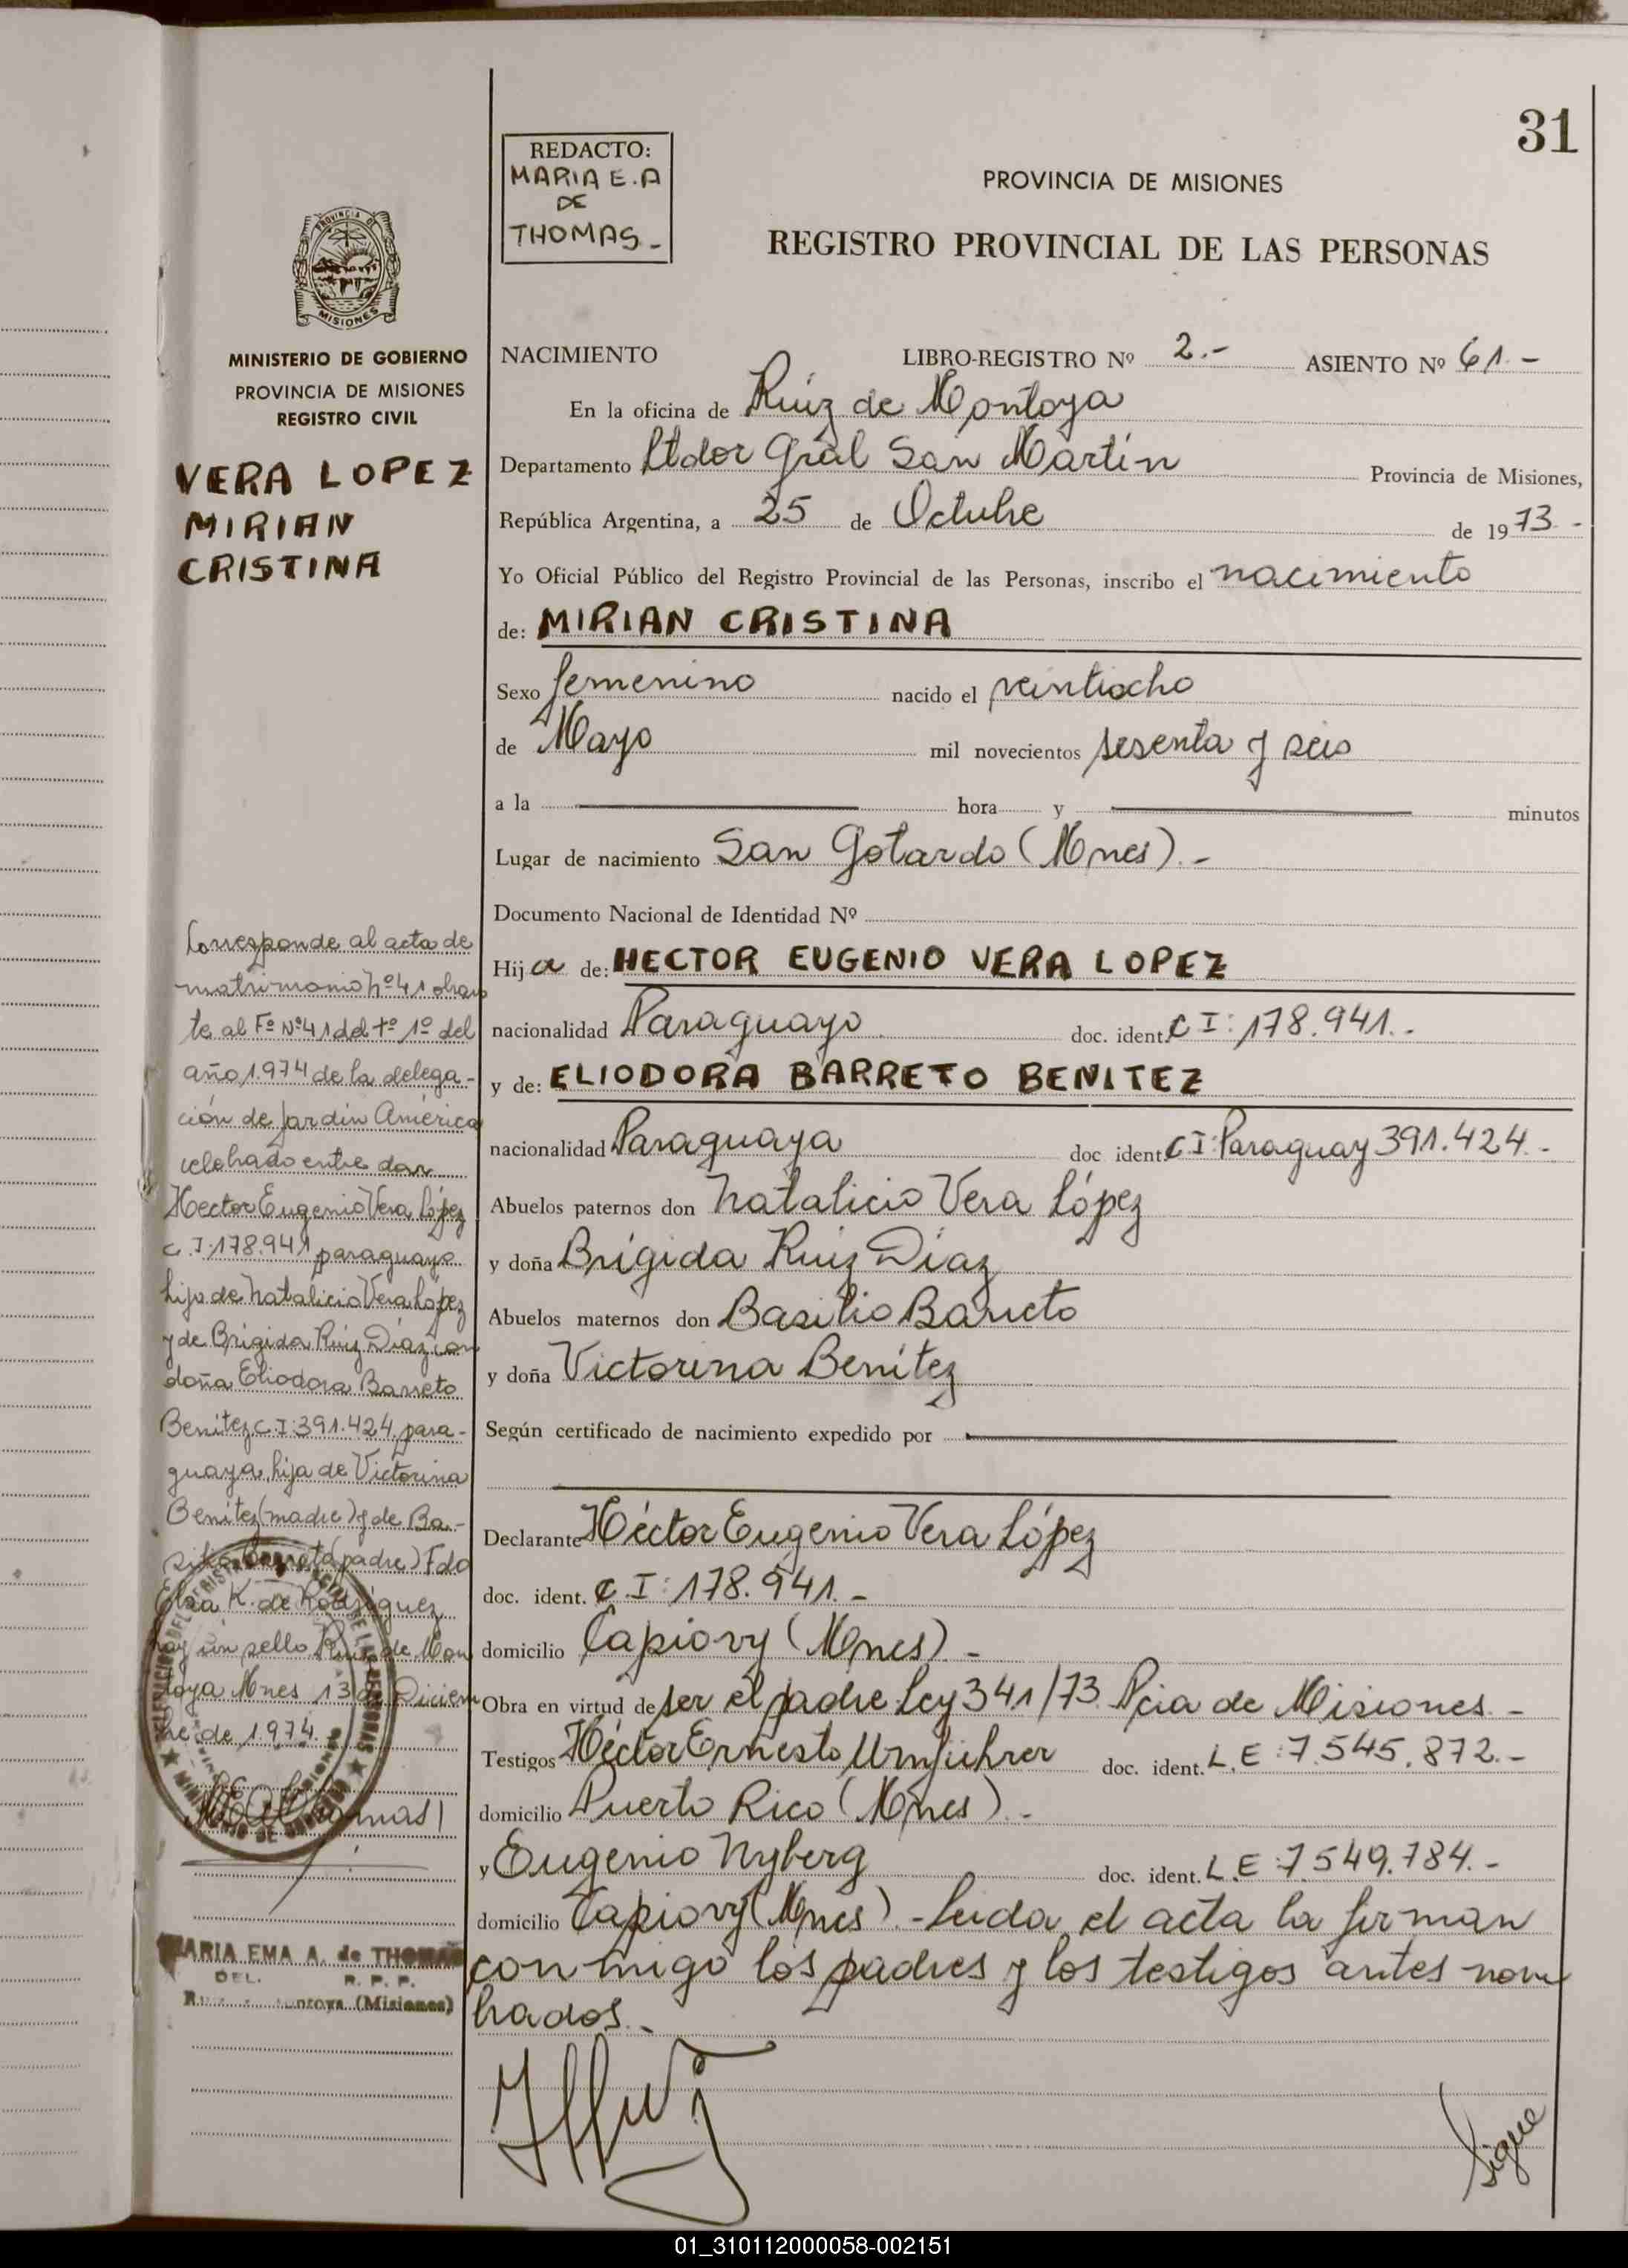 31
REDACTO:
MARIA E.A
DE
THOMAS_
PROVINCIA DE MISIONES
REGISTRO PROVINCIAL DE LAS PERSONAS
PROVINCIA DE
MISIONES
MINISTERIO DE GOBIERNO
PROVINCIA DE MISIONES
REGISTRO CIVIL
VERA LOPEZ
MIRIAN
CRISTINA
Corresponde al acta de
matrimonio Nº 41 obran
te al Fº Nº 41 del tº 1º del
año 1.974 de la delega-
ción de Jardín América
celebrado entre don
Hector Eugenio Vera López
C.I: 178.941 paraguayo
hijo de Natalicio Vera López
y de Brígida Ruiz Díaz con
doña Eliodora Barreto
Benítez C.I: 391.424 para-
guaya, hija de Victorina
Benítez (madre) y de Ba-
silio Barreto (padre) Fdo
Elsa K. de Rodríguez
hay un sello Ruiz de Mon
toya Mnes 13 de Diciem
bre de 1.974
MARIA EMA A. de THOMAS
DEL. R. P. P.
(Misiones)
NACIMIENTO LIBRO-REGISTRO Nº 2.- ASIENTO Nº 61.-
En la oficina de Ruiz de Montoya
Departamento Ltdor Gral San Martín Provincia de Misiones,
República Argentina, a 25 de Octubre de 1973.-
Yo Oficial Público del Registro Provincial de las Personas, inscribo el nacimiento
de: MIRIAN CRISTINA
Sexo femenino nacido el veintiocho
de Mayo mil novecientos sesenta y seis
a la hora y minutos
Lugar de nacimiento San Gotardo (Mnes).-
Documento Nacional de Identidad Nº
Hija de: HECTOR EUGENIO VERA LOPEZ
nacionalidad Paraguayo doc. ident. C I: 178.941.-
y de: ELIODORA BARRETO BENITEZ
nacionalidad Paraguaya doc ident. C I: Paraguay 391.424.-
Abuelos paternos don Natalicio Vera López
y doña Brígida Ruiz Díaz
Abuelos maternos don Basilio Barreto
y doña Victorina Benítez
Según certificado de nacimiento expedido por
Declarante Héctor Eugenio Vera López
doc. ident. C.I: 178.941.-
domicilio Capiovy (Mnes).-
Obra en virtud de ser el padre Ley 341/73 Pcia de Misiones.-
Testigos Héctor Ernesto Umfuhrer doc. ident. L.E: 7.545.872.-
domicilio Puerto Rico (Mnes).-
y Eugenio Nyberg doc. ident. L.E: 7549.784.-
domicilio Capiovy (Mnes).- Leida el acta la firman
conmigo los padres y los testigos antes nom
brados.-
Sigue
01_310112000058-002151